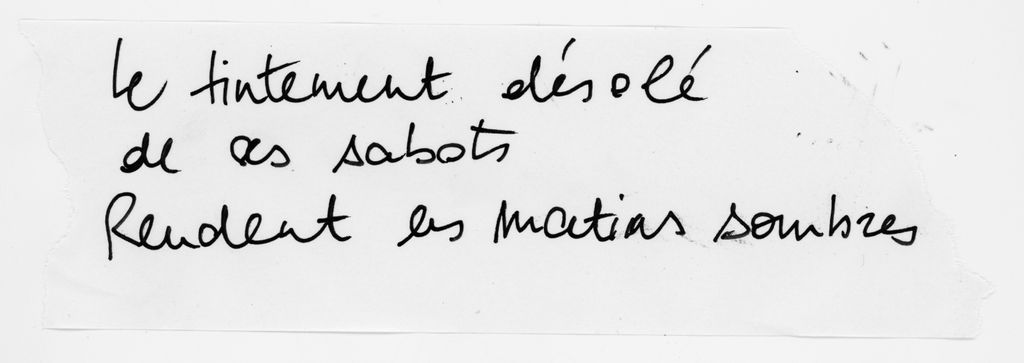 Le tintement désolé
de ces sabots
Rendent les matins sombres